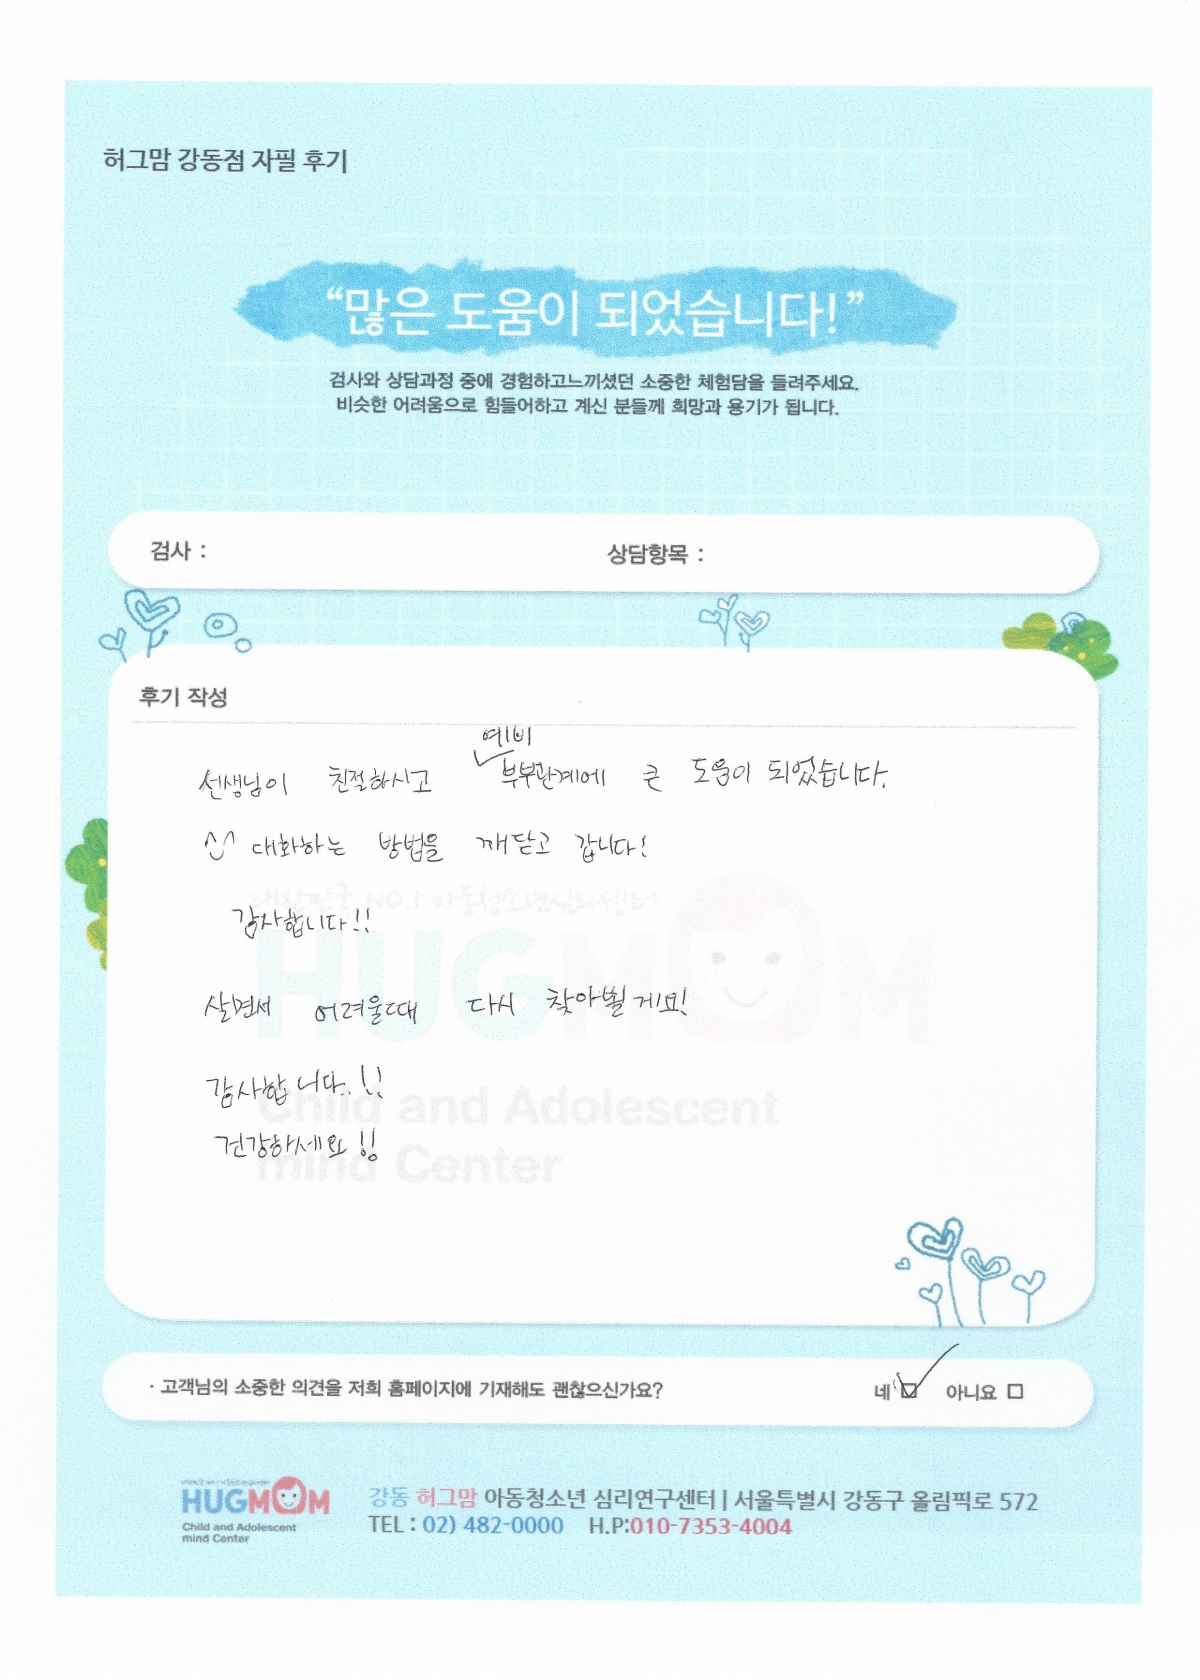 허그맘 강동점 자필 후기
“많은 도움이 되었습니다!”
검사와 상담과정 중에 경험하고느끼셨던 소중한 체험담을 들려주세요.
비슷한 어려움으로 힘들어하고 계신 분들께 희망과 용기가 됩니다.
검사 : 상담항목 :
후기 작성
예비
선생님이 친절하시고 부부관계에 큰 도움이 되었습니다.
^^ 대화하는 방법을 깨닫고 갑니다!
감사합니다!!
살면서 어려울때 다시 찾아뵐게요!
감사합니다..!!
건강하세요!!
대한민국 NO.1 아동청소년심리센터
HUGMOM
Child and Adolescent
mind Center
· 고객님의 소중한 의견을 저희 홈페이지에 기재해도 괜찮으신가요? 네 ☑ 아니요 □
HUGMOM
Child and Adolescent
mind Center
강동 허그맘 아동청소년 심리연구센터 | 서울특별시 강동구 올림픽로 572
TEL : 02) 482-0000 H.P:010-7353-4004